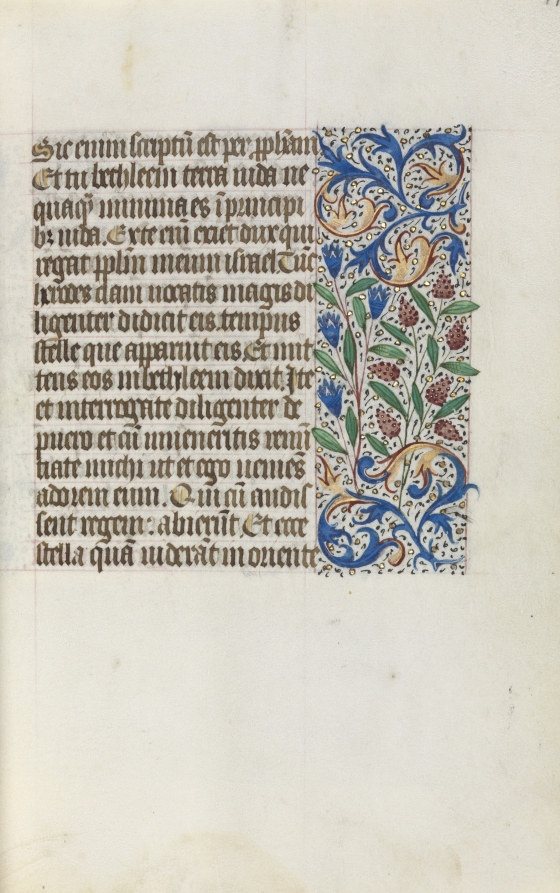 Sic enim scriptū est per pphām
Et tu bethleem terra iuda ne
quaq̄ minima es ī principi
bꝰ iuda. Ex te enī exiet dux qui
regat pplm̄ meum israel Tūc
herodes clam vocatis magis di
ligenter didicit eis tempus
stelle que apparuit eis. Et mit
tens eos in bethleem dixit. Ite
et interrogate diligenter de
puero et cū inueneritis renū
tiate michi ut et ego veniēs
adorem eum. Qui cū audis
sent regem: abierūt Et ecce
stella quā viderāt in oriente